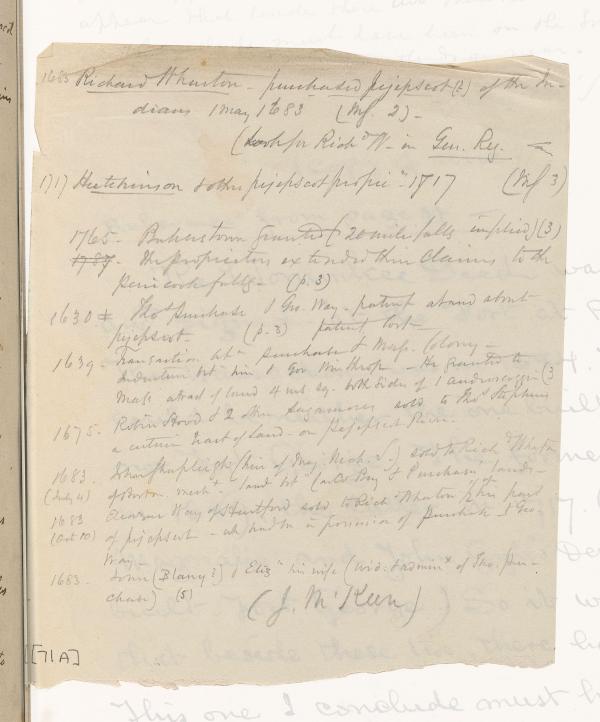 1683 Richard Wharton - purchased Pejepscot (2) of the In-
dians 1 May 1683 (Mf. 2) -
(Look for Richd W - in Gen. Reg.
1717 Hutchinson & other pejepscot propri 1717 (Mf 3)
1765 - Bakerstown granted (20 mile falls implied) (3)
1787 - the proprietors extended their claims to the
falls - (p. 3)
1630 Thos Purchase & Geo. Way - patent at and about
pejepscot - (p. 3) patent lost -
1639 - Transaction btn Purchase & Mass. Colony -
Indenture bt him & Gov Winthrop - He granted to
Mass a tract of land 4 mls sq. both sides of Androscoggin (3
1675. Robin Hood & 2 other Sagamores sold to Thos Stephens
a certain tract of land - on Pejepscot River.
1683. Shapleigh (heir of Maj. Nich. S.) sold to Richd Wharton
(July 4) of Boston mercht. land bt Casco Bay & Purchase lands -
1683 Eleazer Way of Hartford sold to Richd Wharton his part
(Oct 10) of pejepscot - wh had in possession of Purchase & Geo.
Way -
1683. John (Blany?) & Eliz his wife (wid. & adminx of Tho. Pur-
chase) (5) (J. McKeen)
[71A]